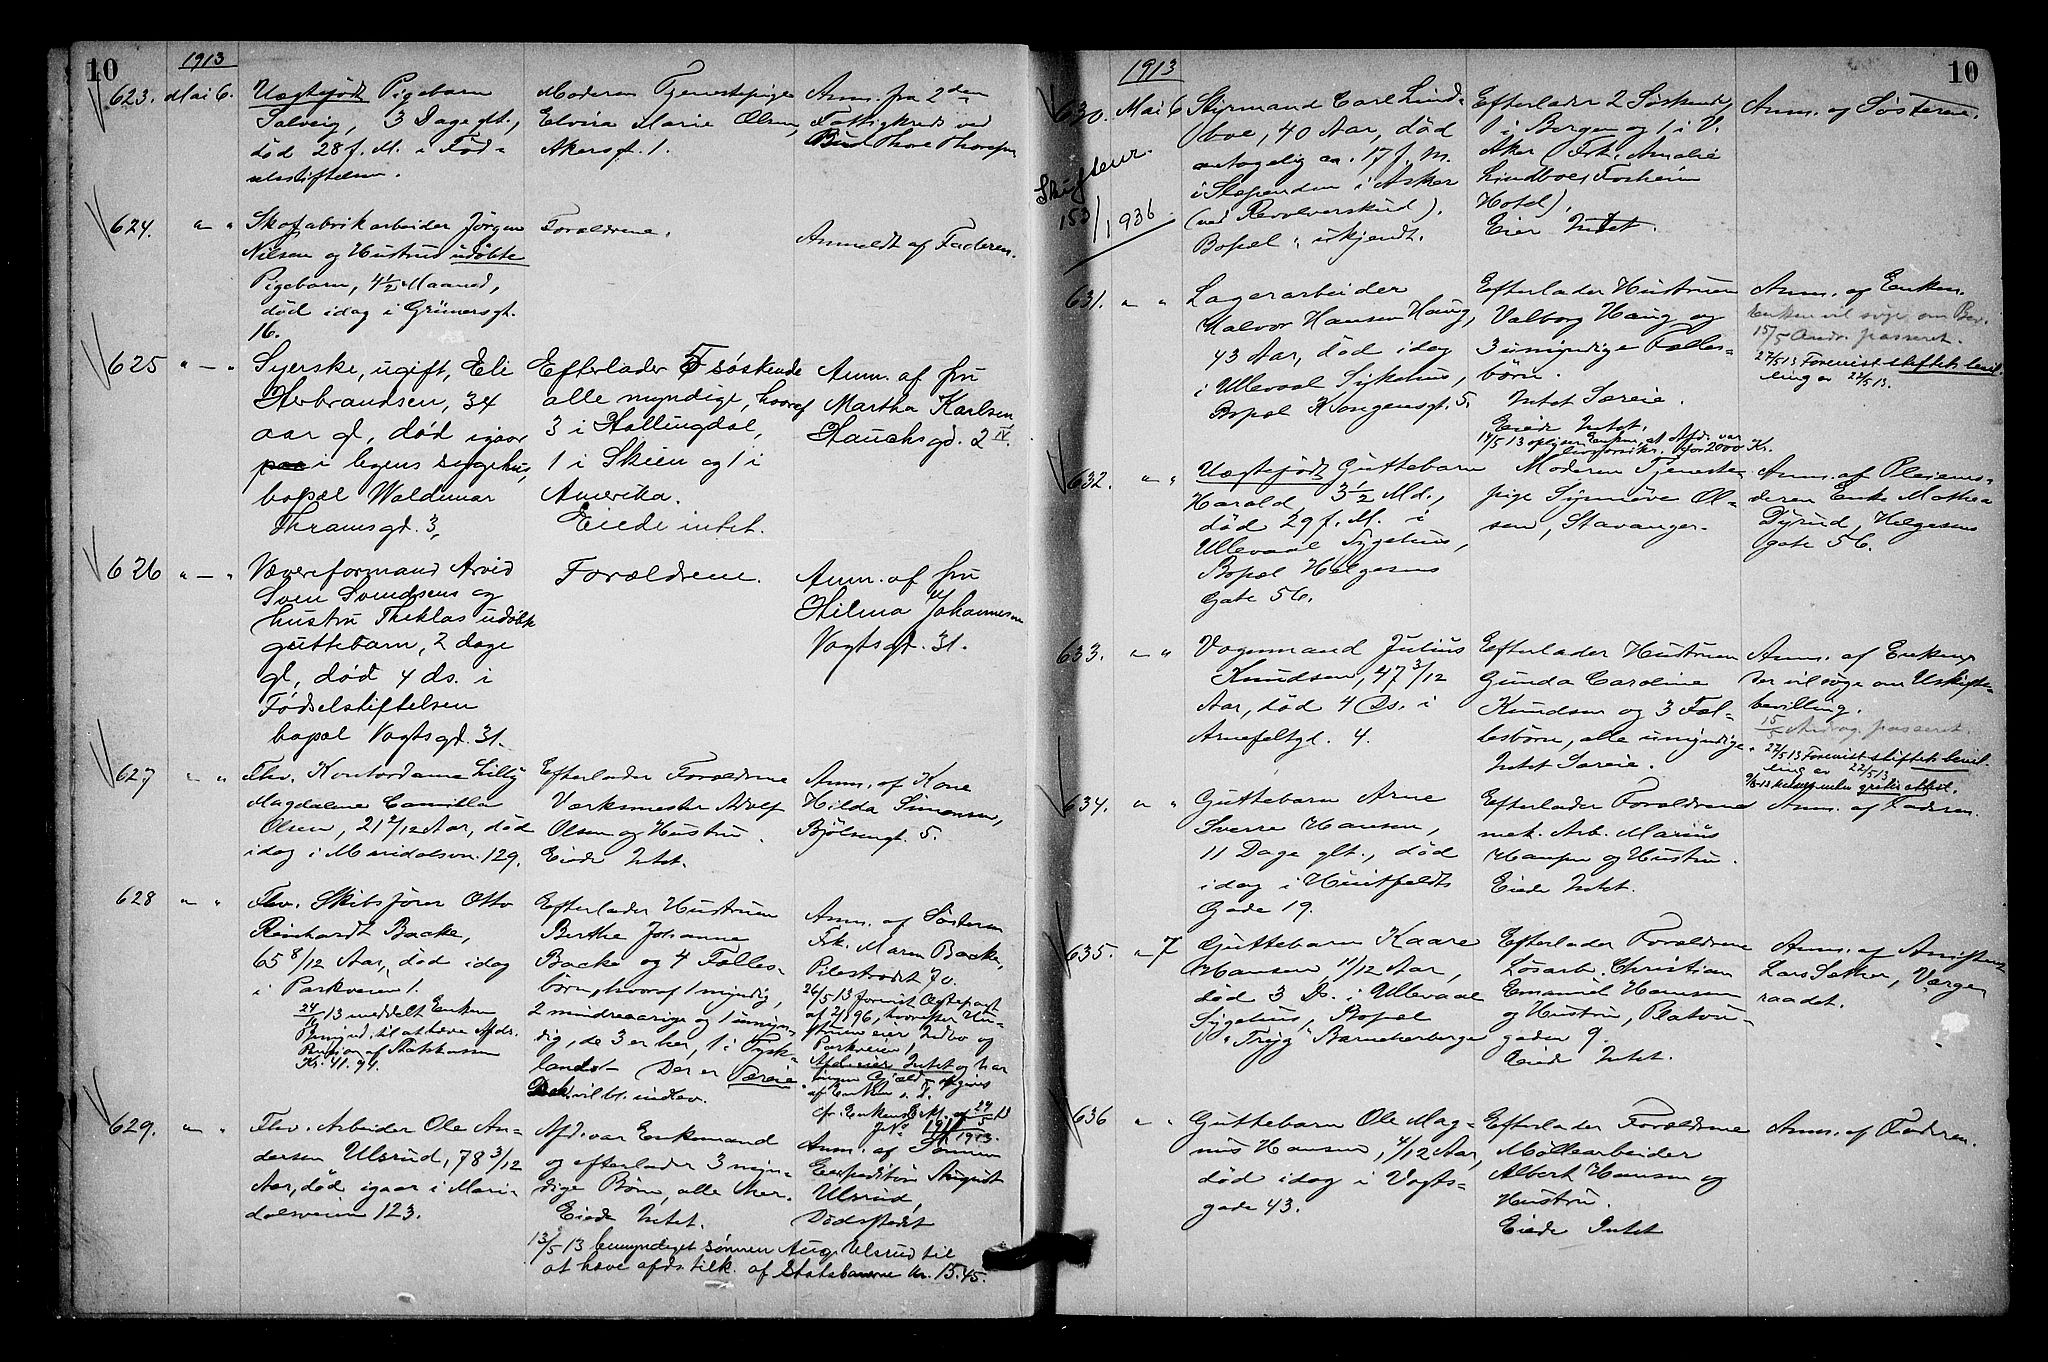 10
1913
623. Mai 6. Uægtefødt Pigebarn
Solveig, 3 Dage glt.,
død 28 f. M. i Fød-
selsstiftelsen.
Moderen Tjenestepige
Elvira Marie Olsen,
Akersgt. 1.
Anm. fra 2den
Fattigkreds ved
Thore Thoresen
624. " "
Skofabrikarbeider Jörgen
Nilsen og Hustrus udøbte
Pigebarn, 4½ Maaned,
død idag i Grünersgt.
16.
Forældrene.
Anmeldt af Faderen.
625 " — "
Syerske, ugift, Eli
Herbrandsen, 34
aar gl, død igaar
paa i legens sygehus,
bopæl Waldemar
Thranesgd. 3,
Efterlader 5 søskende
alle myndige, hvoraf
3 i Hallingdal,
1 i Skien og 1 i
Amerika.
Eiede intet.
Anm. af fru
Martha Karlsen
Hauchsgd. 2 IV.
626 " — "
Væverformand Arvid
Sven Svendsens og
hustru Theklas udøbte
guttebarn, 2 dage
gl, død 4 ds. i
Fødselstiftelsen
bopæl Vogtsgd. 31.
Forældrene.
Anm. af fru
Hilma Johannesen
Vogtsgt. 31.
627 " "
Fhv. Kontordame Lilly
Magdalene Camilla
Olsen, 21 2/12 Aar, død
idag i Maridalsvn. 129.
Efterlader Forældrene
Værksmester Adolf
Olsen og Hustru.
Eiede Intet.
Anm. af Kone
Hilda Simonsen,
Bjölsengt. 5.
628 " "
Fhv. Skibsfører Otto
Reinhardt Backe,
65 8/12 Aar, død idag
i Parkveien 1.
24/5 13 meddelt Enken
Bemynd. til at hæve afdøs.
Pension af Statskassen
Kr. 41.94.
Efterlader Hustruen
Berthe Johanne
Backe og 4 Fælles-
børn, hvoraf 1 myndig,
2 mindreaarige og 1 umyn-
dig, de 3 er her, 1 i Tysk-
land. - Der er Særeie.
vil bl. indlev.
Anm. af Søsteren
Frk. Maren Backe,
Pilestrædet 70.
26/5 13 forevist Ægtepact
af 2/1 96, hvorefter Hu-
struen eier Indbo og
Parkveien 1,
Afd. eier Intet og har
ingen Gjæld opgives
af Enken s. D.
cfr. Enkens Skr. af 24/5 13
J. No 1911/1913.
629. " "
Fhv. Arbeider Ole An-
dersen Ulsrud, 78 3/12
Aar, død igaar i Mari-
dalsveien 123.
Afd. var Enkemand
og efterlader 3 myn-
dige Børn, alle her.
Eiede Intet.
Anm. af Sønnen
Expeditör August
Ulsrud,
Dödsstedet
13/5 13 bemyndiget sönnen Aug. Ulsrud til
at hæve afds. tilk. af Statsbanerne kr. 15.45.
10
1913
630. Mai 6
Skifteur.
153/1936
Styrmand Carl Lind-
boe, 40 Aar, död
antagelig ca. 17 f. M.
i Slependen i Asker
(ved Revolverskud).
Bopæl: ukjendt.
Efterlader 2 Søskende,
1 i Bergen og 1 i V.
Aker (Frk. Amalie
Lindboe, Fosheim
Hotel).
Eier Intet
Anm. af Søsteren.
631. " "
Lagerarbeider
Halvor Hansen Haug,
43 Aar, død idag
i Ullevaal Sykehus,
Bopæl Kongensgt. 5.
Efterlader Hustruen
Valborg Haug og
3 umyndige Fælles-
børn.
Intet Særeie.
Eiede Intet.
14/5 13 opgiver Enken, at Afd. var
livsforsikr. for 2000 Kr.
Anm. af Enken.
Enken vil søge om Bev.
15/5 Andr. passeret.
27/5 13 Forevist skiftets bevil-
ling av 22/5 13.
632. " "
Uægtefødt Guttebarn
Harald 3½ Md.,
død 29 f. M. i
Ullevaal Sygehus,
Bopæl Helgesens
Gate 56.
Moderen Tjeneste-
pige Synnöve Ol-
sen, Stavanger.
Anm. af Pleiemo-
deren Enke Mathea
Dyrud, Helgesens
gate 56.
633. " "
Vognmand Julius
Knudsen, 47 3/12
Aar, død 4 Ds. i
Armfeltgt. 4.
Efterlader Hustruen
Gunda Caroline
Knudsen og 3 Fæl-
lesbörn, alle umyndige.
Intet Særeie.
Anm. af Enken,
der vil søge om Uskifte-
bevilling.
15/5 Andrag. passeret.
27/5 13 Forevist skiftets bevil-
ling av 22/5 13
634. " "
Guttebarn Arne
Sverre Hansen,
11 Dage glt., død
idag i Huitfeldts
Gade 19.
Efterlader Forældrene
mek. Arb. Marius
Hansen og Hustru.
Eiede Intet.
Anm. af Faderen.
635. " 7
Guttebarn Kaare
Hansen 11/12 Aar,
død 3 Ds. i Ullevaal
Sygehus, Bopæl
"Tryg" Barneherberge
Efterlader Forældrene
Løsarb. Christian
Emanuel Hansen
og Hustru, Platou-
gaden 9.
Eiede Intet.
Lars Sæther, Værge-
raadet.
636 " "
Guttebarn Ole Mag-
nus Hansen, 4/12 Aar,
död idag i Vogts-
gade 43.
Efterlader Forældrene
Møllearbeider
Albert Hansen og
Hustru.
Eiede Intet
Anm. af Faderen.